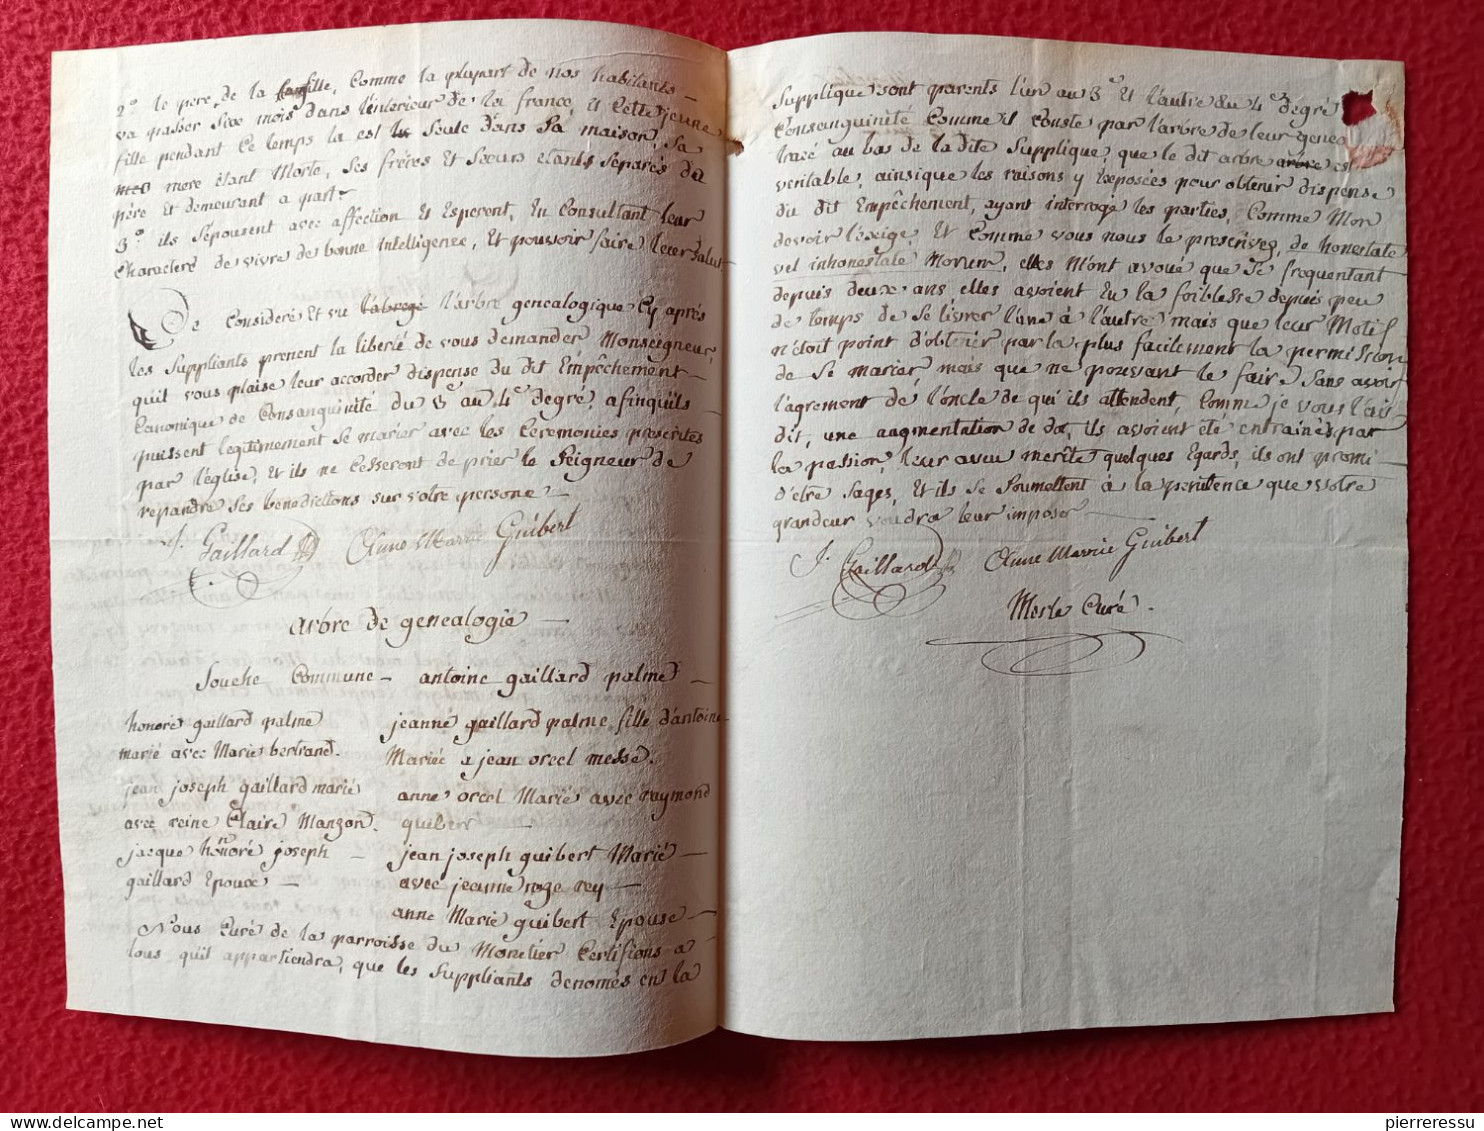 2.° le pere de la fille, Comme la plupart de nos habitants –
va passer Sixe mois dans l'interieur de la france, et Cette jeune
fille pendant Ce temps la est Seule dans Sa maison, Sa
mere étant Morte, Ses fréres Et Sœurs etants Séparés du
père Et demeurant a part –
3.° ils Sépousent avec affection Et Esperent, En Consultant leur
Charactere de vivre de bonne intelligence, Et pouvoir faire leur Salut
Ce Consideré Et vu l'abrege l'arbre genealogique Cy aprés
les Suppliants prenent la liberté de vous demander Monseigneur,
quil vous plaise leur accorder dispense du dit Empêchement –
Canonique de Consanguinité du 3e au 4e degré, afinquils –
puissent legitimement Se marier avec les Ceremonies prescrites
par l'église, Et ils ne Cesseront de prier le Seigneur de
repandre Ses benedictions sur votre persone –
J. Gaillard Anne Marrie Guibert
arbre de genealogie –
Souche Commune – antoine gaillard palme –
honoré gaillard palme
marié avec Marie bertrand.
jean joseph gaillard marié
avec reine Claire Manzon.
jacque honoré joseph –
gaillard Epoux –
jeanne gaillard palme fille d'antoine
Mariée a jean orcel messe.
anne orcel Marié avec raymond
guibert –
jean joseph guibert Marié –
avec jeanne roze rey –
anne Marie guibert Epouse –
Nous Curé de la parroisse du Monetier Certifions a
tous quil appartiendra, que les Suppliants denomés en la
Supplique sont parents l'un au 3e Et l'autre au 4e degré
Consanguinité Comme il Conste par l'arbre de leur genea
tracé au bas de la dite Supplique, que le dit arbre arbre est
veritable, ainsique les raisons y Exposées pour obtenir dispense
du dit Empêchement, ayant interrogé les parties, Comme Mon
devoir l'exige, Et Comme vous nous le prescrivez, de honestate
vel inhonestate Morum, elles M'ont avoué que Se frequentant
depuis deux ans elles avoient Eu la foiblesse depuis peu
de temps de Se livrer l'une à l'autre, mais que leur Motif
n'étoit point d'obtenir par la plus facilement la permission
de Se marier mais que ne pouvant le faire Sans avoir
l'agrement de l'oncle de qui ils attendent, Comme je vous l'ai
dit, une augmentation de dot, ils avoient été entrainés par
la passion, leur aveu merite quelques Egards, ils ont promi –
d'etre Sages, Et ils Se Soumettent à la penitence que votre
grandeur voudra leur imposer –
J. Gaillard Anne Marrie Guibert
Merle Curé .
pierreressu